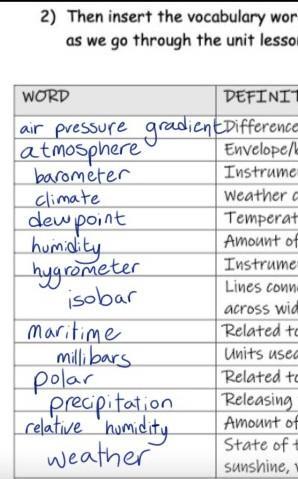 2) Then insert the vocabulary wor
as we go through the unit lesso
WORD DEFINIT
air pressure gradient Difference
atmosphere Envelope/
barometer Instrume
climate Weather
dewpoint Temperat
humidity Amount of
hygrometer Instrume
isobar Lines conn
across wid
maritime Related to
millibars Units used
polar Related to
precipitation Releasing
relative humidity Amount of
weather State of t
sunshine,